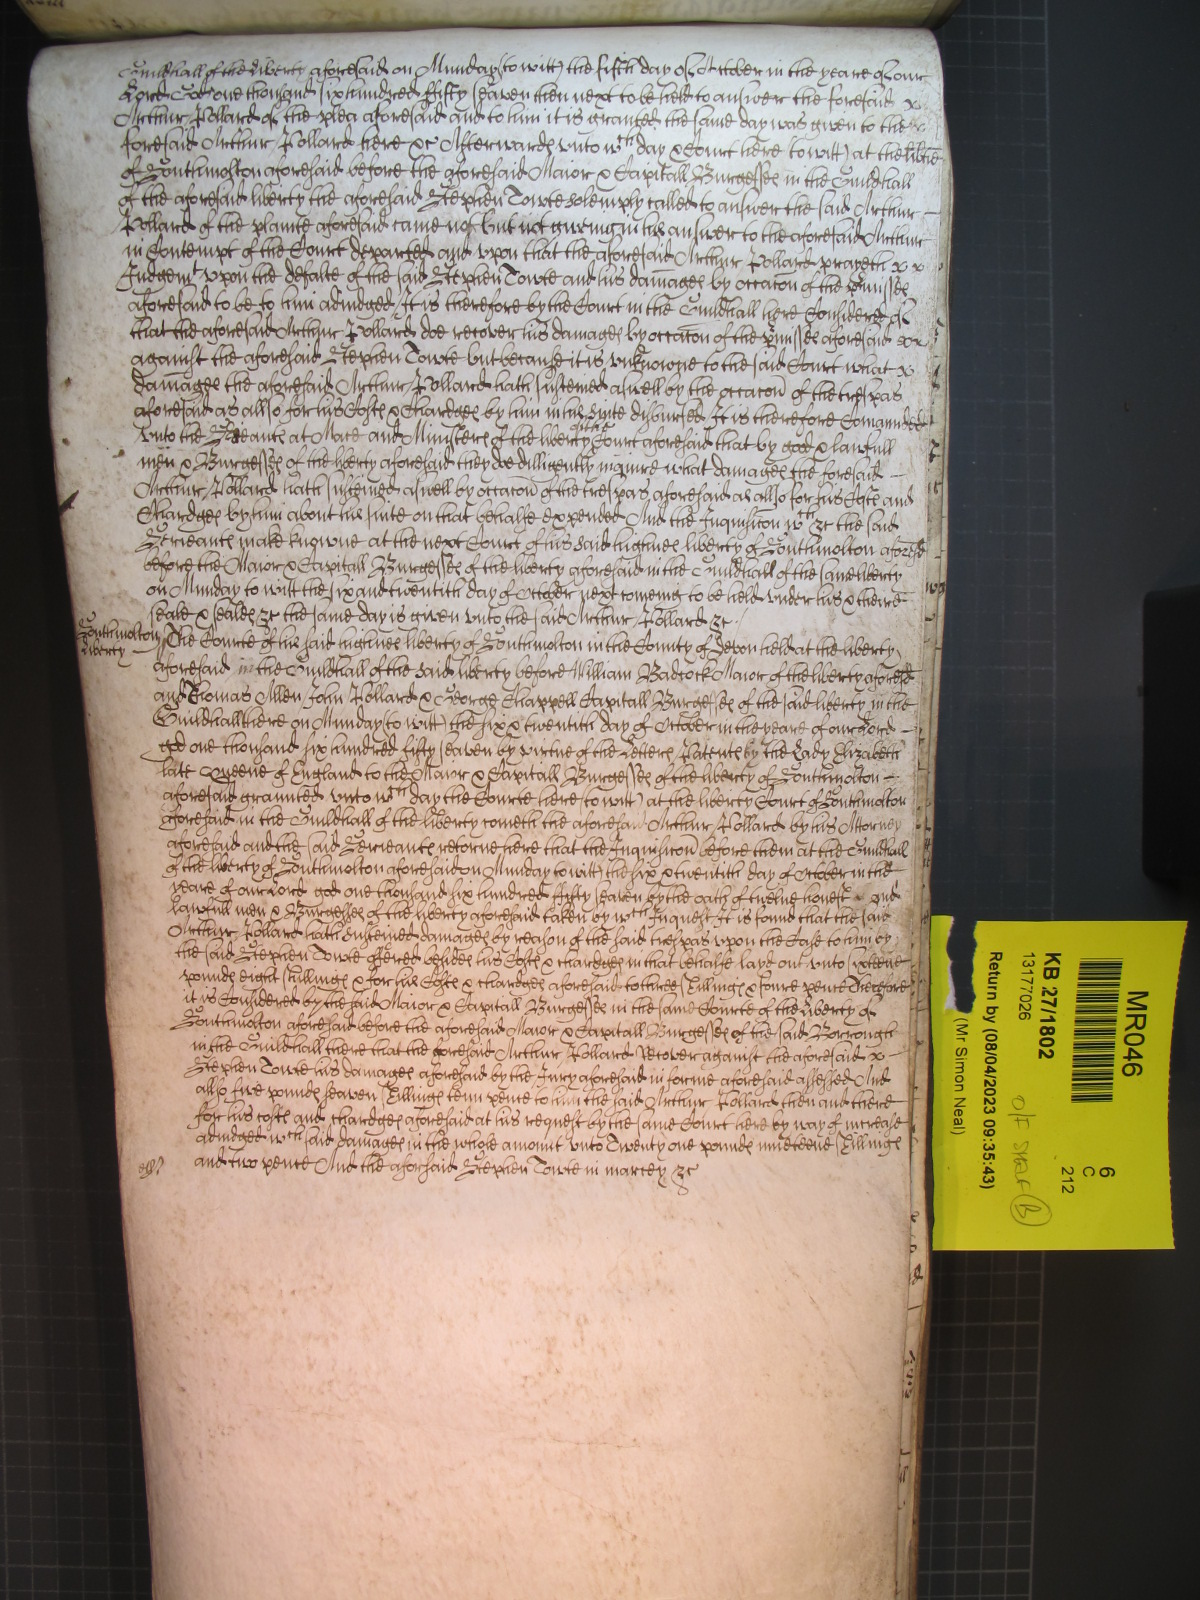 Guildhall of the Liberty aforesaid on Munday (to witt) the fifth day of October in the yeare of our
Lord God one thousand six hundred ffifty seaven then next to be held to answer the foresaid x
Arthur Pollard of the plea aforesaid and to him it is granted the same day was given to the
foresaid Arthur Pollard here &c Afterwards unto wch day & Court here (to witt) at the libtie
of Southmolton aforesaid before the aforesaid Maior & Capitall Burgesses in the Guildhall
of the aforesaid liberty the aforesaid Stephen Towte solemply called to answer the said Arthur
Pollard of the plainte aforesaid came not but not giveing in his answer to the aforesaid Arthur
in Contempt of the Court departed and upon that the aforesaid Arthur Pollard prayeth x x
Judgemt upon the defalte of the said Stephen Towte and his damages by occacon of the pmisses
aforesaid to be to him adiudged It is therefore by the Court in the Guildhall here Considered of
that the aforesaid Arthur Pollard doe recover his damages by occacon of the pmisses aforesaid xx
against the aforesaid Stephen Towte but because it is unknowne to the said Court what x
damages the aforesaid Arthur Pollard hath susteined aswell by the occacon of the trespas
aforesaid as allso for his Costs & Chardges by him in his suite disbursed It is therefore Comannded
unto the Serieants at Mace and Ministers of the liberty Court aforesaid that by god & lawfull
men & Burgesses of the liberty aforesaid they doe dilligently inquire what damages the foresaid
Arthur Pollard hath susteined aswell by occacon of the trespas aforesaid as allso for his Costs and
Chardges by him about his suite on that behalfe expended And the Inquisicon wch &c the said
Serieants make knowne at the next Court of his said highnes liberty of Southmolton aforesd
before the Maior & Capitall Burgesses of the liberty aforesaid in the Guildhall of the same liberty
on Munday to witt the six and twentith day of October next comeing to be held under his & theire
seale & seales &c the same day is given unto the said Arthur Pollard &c
Southmolton
Liberty
The Courte of his said highnes liberty of Southmolton in the County of Devon held at the liberty
aforesaid in the Guildhall of the said liberty before William Badcock Maior of the liberty aforesd
and Thomas Allen John Pollard & George Chappell Capitall Burgesses of the said liberty in the
Guildhall there on Munday (to witt) the six & twentith day of October in the yeare of our Lord
god one thousand six hundred fifty seaven by virtue of the Letters Patents by the Lady Elizabeth
late Queene of England to the Maior & Capitall Burgesses of the liberty of Southmolton
aforesaid graunted unto wch day the Courte here (to witt) at the liberty Court of Southmolton
aforesaid in the Guildhall of the liberty cometh the aforesaid Arthur Pollard by his Attorney
aforesaid and the said Serieants retorne here that the Inquisicon before them at the Guildhall
of the liberty of Southmolton aforesaid on Munday to witt the six & twentith day of October in the
yeare of our Lord god one thousand six hundred ffifty seaven by the oath of twelve honest and
lawfull men & Burgesses of the liberty aforesaid taken by wch Inquest It is found that the said
Arthur Pollard hath susteined damages by reason of the said trespas upon the Case to him by
the said Stephen Towte offered besides his Costs & chardges in that behalfe layd out unto sixteene
pounds eight shillings & for his Costs & chardges aforesaid to three shillings & foure pence Therefore
it is Considered by the said Maior & Capitall Burgesses in the same Courte of the liberty of
Southmolton aforesaid before the aforesaid Maior & Capitall Burgesses of the said Borrough
in the Guildhall there that the foresaid Arthur Pollard recover against the aforesaid x
Stephen Towte his damages aforesaid by the Jury aforesaid in forme aforesaid assessed And
allso five pounds seaven shillings tenn pence to him the said Arthur Pollard then and there
for his costs and chardges aforesaid at his request by the same Court here by way of increase
adiudged wch said damages in the whole amount unto Twenty one pounds nineteene shillings
and two pence And the aforsaid Stephen Towte in marcey &c
MR046
6
C
212
KB 27/1802
13177026
O/F
Return by (08/04/2023 09:35:43)
(Mr Simon Neal)